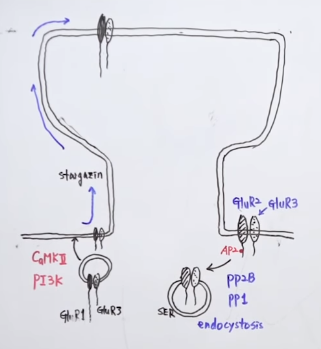 stargazin
CaMKII
PI3K
GluR1 GluR3
GluR2 GluR3
AP2
PP2B
PP1
SER
endocystosis